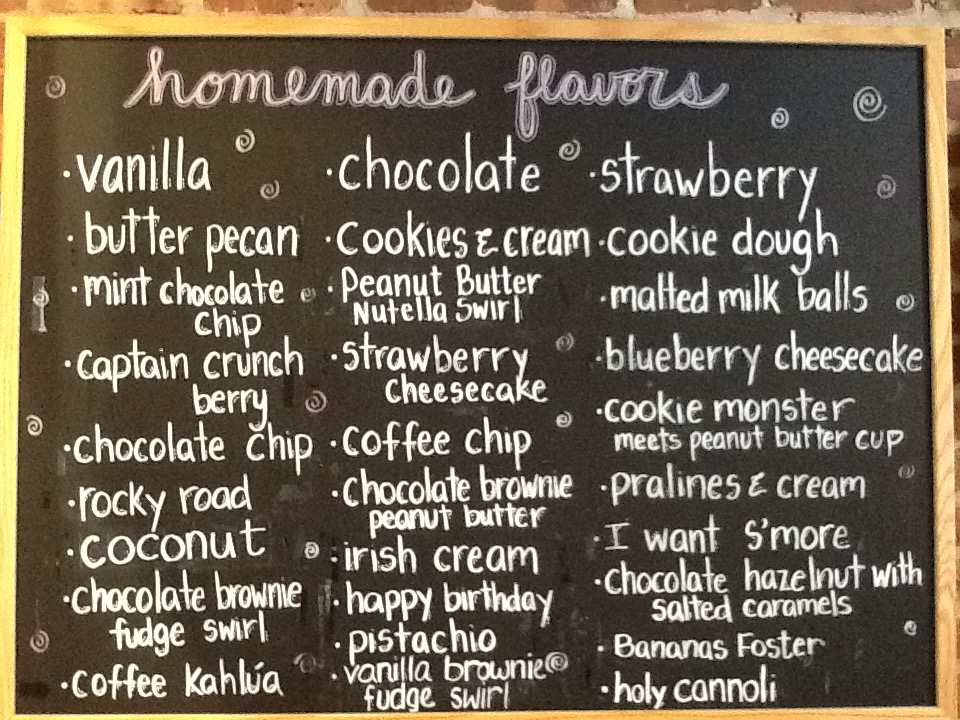 homemade flavors
·vanilla
·butter pecan
·mint chocolate
chip
·captain crunch
berry
·chocolate chip
·rocky road
·coconut
·chocolate brownie
fudge swirl
·coffee Kahlúa
·chocolate
·Cookies & cream
·Peanut Butter
Nutella Swirl
·strawberry
cheesecake
·coffee chip
·chocolate brownie
peanut butter
·irish cream
·happy birthday
·pistachio
·vanilla brownie
fudge swirl
·strawberry
·cookie dough
·malted milk balls
·blueberry cheesecake
·cookie monster
meets peanut butter cup
·pralines & cream
·I want S'more
·chocolate hazelnut with
salted caramels
·Bananas Foster
·holy cannoli